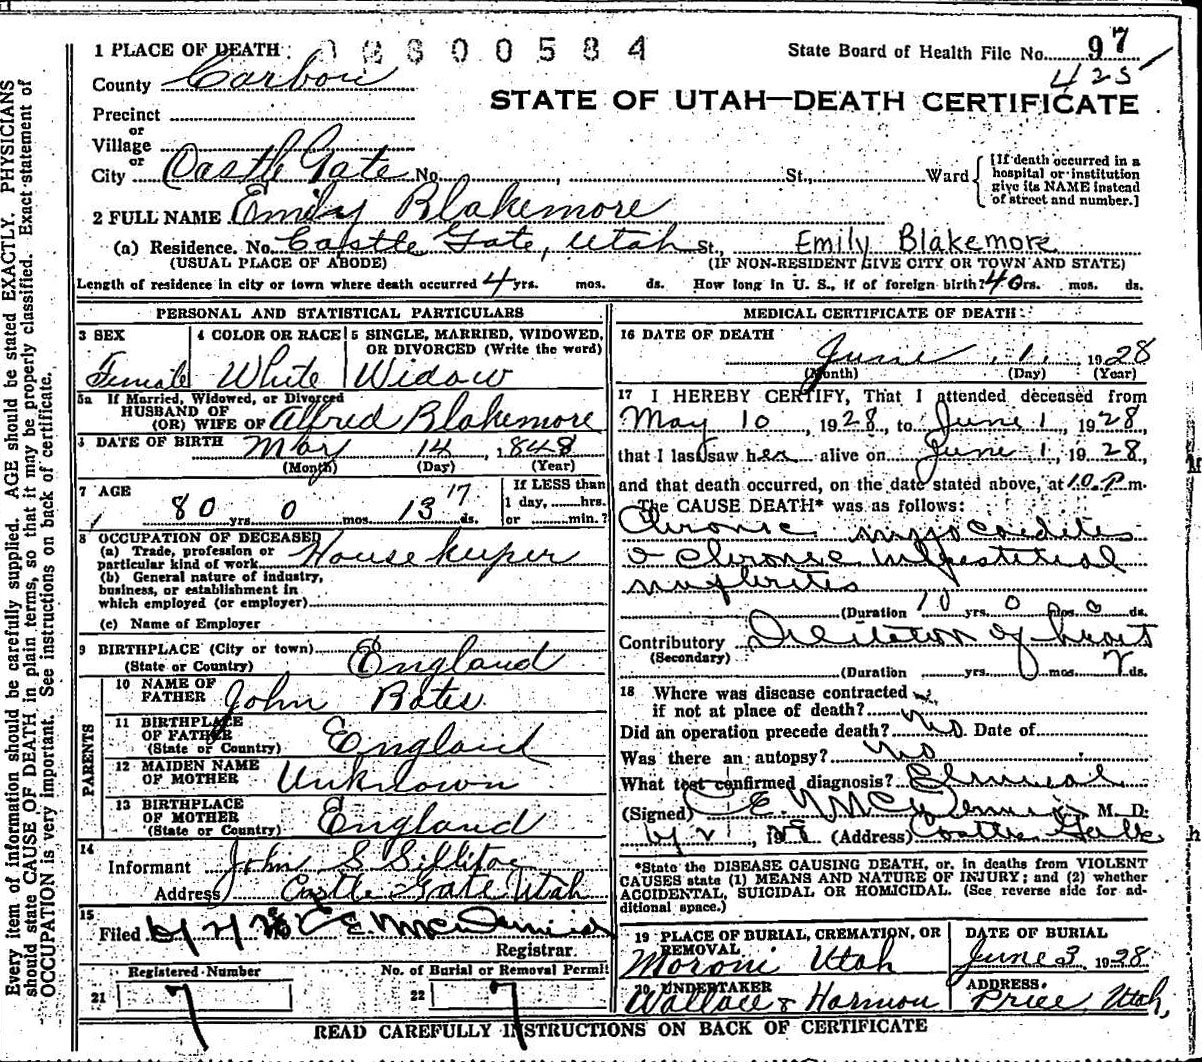 1 PLACE OF DEATH 02600584 State Board of Health File No. 97
County Carbon 425
STATE OF UTAH—DEATH CERTIFICATE
Precinct
or
Village
or
City Castle Gate No. , St., Ward [If death occurred in a hospital or institution give its NAME instead of street and number.]
2 FULL NAME Emily Blakemore
(a) Residence. No. Castle Gate, Utah St., Emily Blakemore
(USUAL PLACE OF ABODE) (IF NON-RESIDENT GIVE CITY OR TOWN AND STATE)
Length of residence in city or town where death occurred 4 yrs. mos. ds. How long in U. S., if of foreign birth? 40 rs. mos. ds.
PERSONAL AND STATISTICAL PARTICULARS
3 SEX 4 COLOR OR RACE 5 SINGLE, MARRIED, WIDOWED,
OR DIVORCED (Write the word)
Female White Widow
5a If Married, Widowed, or Divorced
HUSBAND OF
(OR) WIFE OF Alfred Blakemore
DATE OF BIRTH May 14, 1848
(Month) (Day) (Year)
7 AGE If LESS than
1 day, hrs.
80 yrs. 0 mos. 13 17 ds. or min.?
8 OCCUPATION OF DECEASED
(a) Trade, profession or
particular kind of work Housekeeper
(b) General nature of industry,
business, or establishment in
which employed (or employer)
(c) Name of Employer
9 BIRTHPLACE (City or town)
(State or Country) England
PARENTS
10 NAME OF
FATHER John Bates
11 BIRTHPLACE
OF FATHER
(State or Country) England
12 MAIDEN NAME
OF MOTHER Unknown
13 BIRTHPLACE
OF MOTHER
(State or Country) England
14
Informant John S Sillitoe
Address Castle Gate Utah
15
Filed C E McDermid
Registrar.
Registered Number No. of Burial or Removal Permit
21 7 22 7
MEDICAL CERTIFICATE OF DEATH
16 DATE OF DEATH
June 1, 1928
(Month) (Day) (Year)
17 I HEREBY CERTIFY, That I attended deceased from
May 10, 1928, to June 1, 1928
that I last saw her alive on June 1, 1928,
and that death occurred, on the date stated above, at 10 P.m.
The CAUSE DEATH* was as follows:
Chronic myocardites
& Chronic Interstitial
nephrites
(Duration 10 yrs. 0 mos. 0 ds.
Contributory Dilitation of heart
(Secondary)
(Duration yrs. mos. ds.
18 Where was disease contracted
if not at place of death?
Did an operation precede death? no. Date of
Was there an autopsy? no
What test confirmed diagnosis? Clinical
(Signed) C E McDermid M. D.
(Address) Castle Gate
*State the DISEASE CAUSING DEATH, or, in deaths from VIOLENT
CAUSES state (1) MEANS AND NATURE OF INJURY; and (2) whether
ACCIDENTAL, SUICIDAL OR HOMICIDAL. (See reverse side for ad-
ditional space.)
19 PLACE OF BURIAL, CREMATION, OR DATE OF BURIAL
REMOVAL
Moroni Utah June 3, 1928
20 UNDERTAKER ADDRESS
Wallace & Harmon Price, Utah,
READ CAREFULLY INSTRUCTIONS ON BACK OF CERTIFICATE
Every item of information should be carefully supplied. AGE should be stated EXACTLY. PHYSICIANS
should state CAUSE OF DEATH in plain terms, so that it may be properly classified. Exact statement of
OCCUPATION is very important. See instructions on back of certificate.